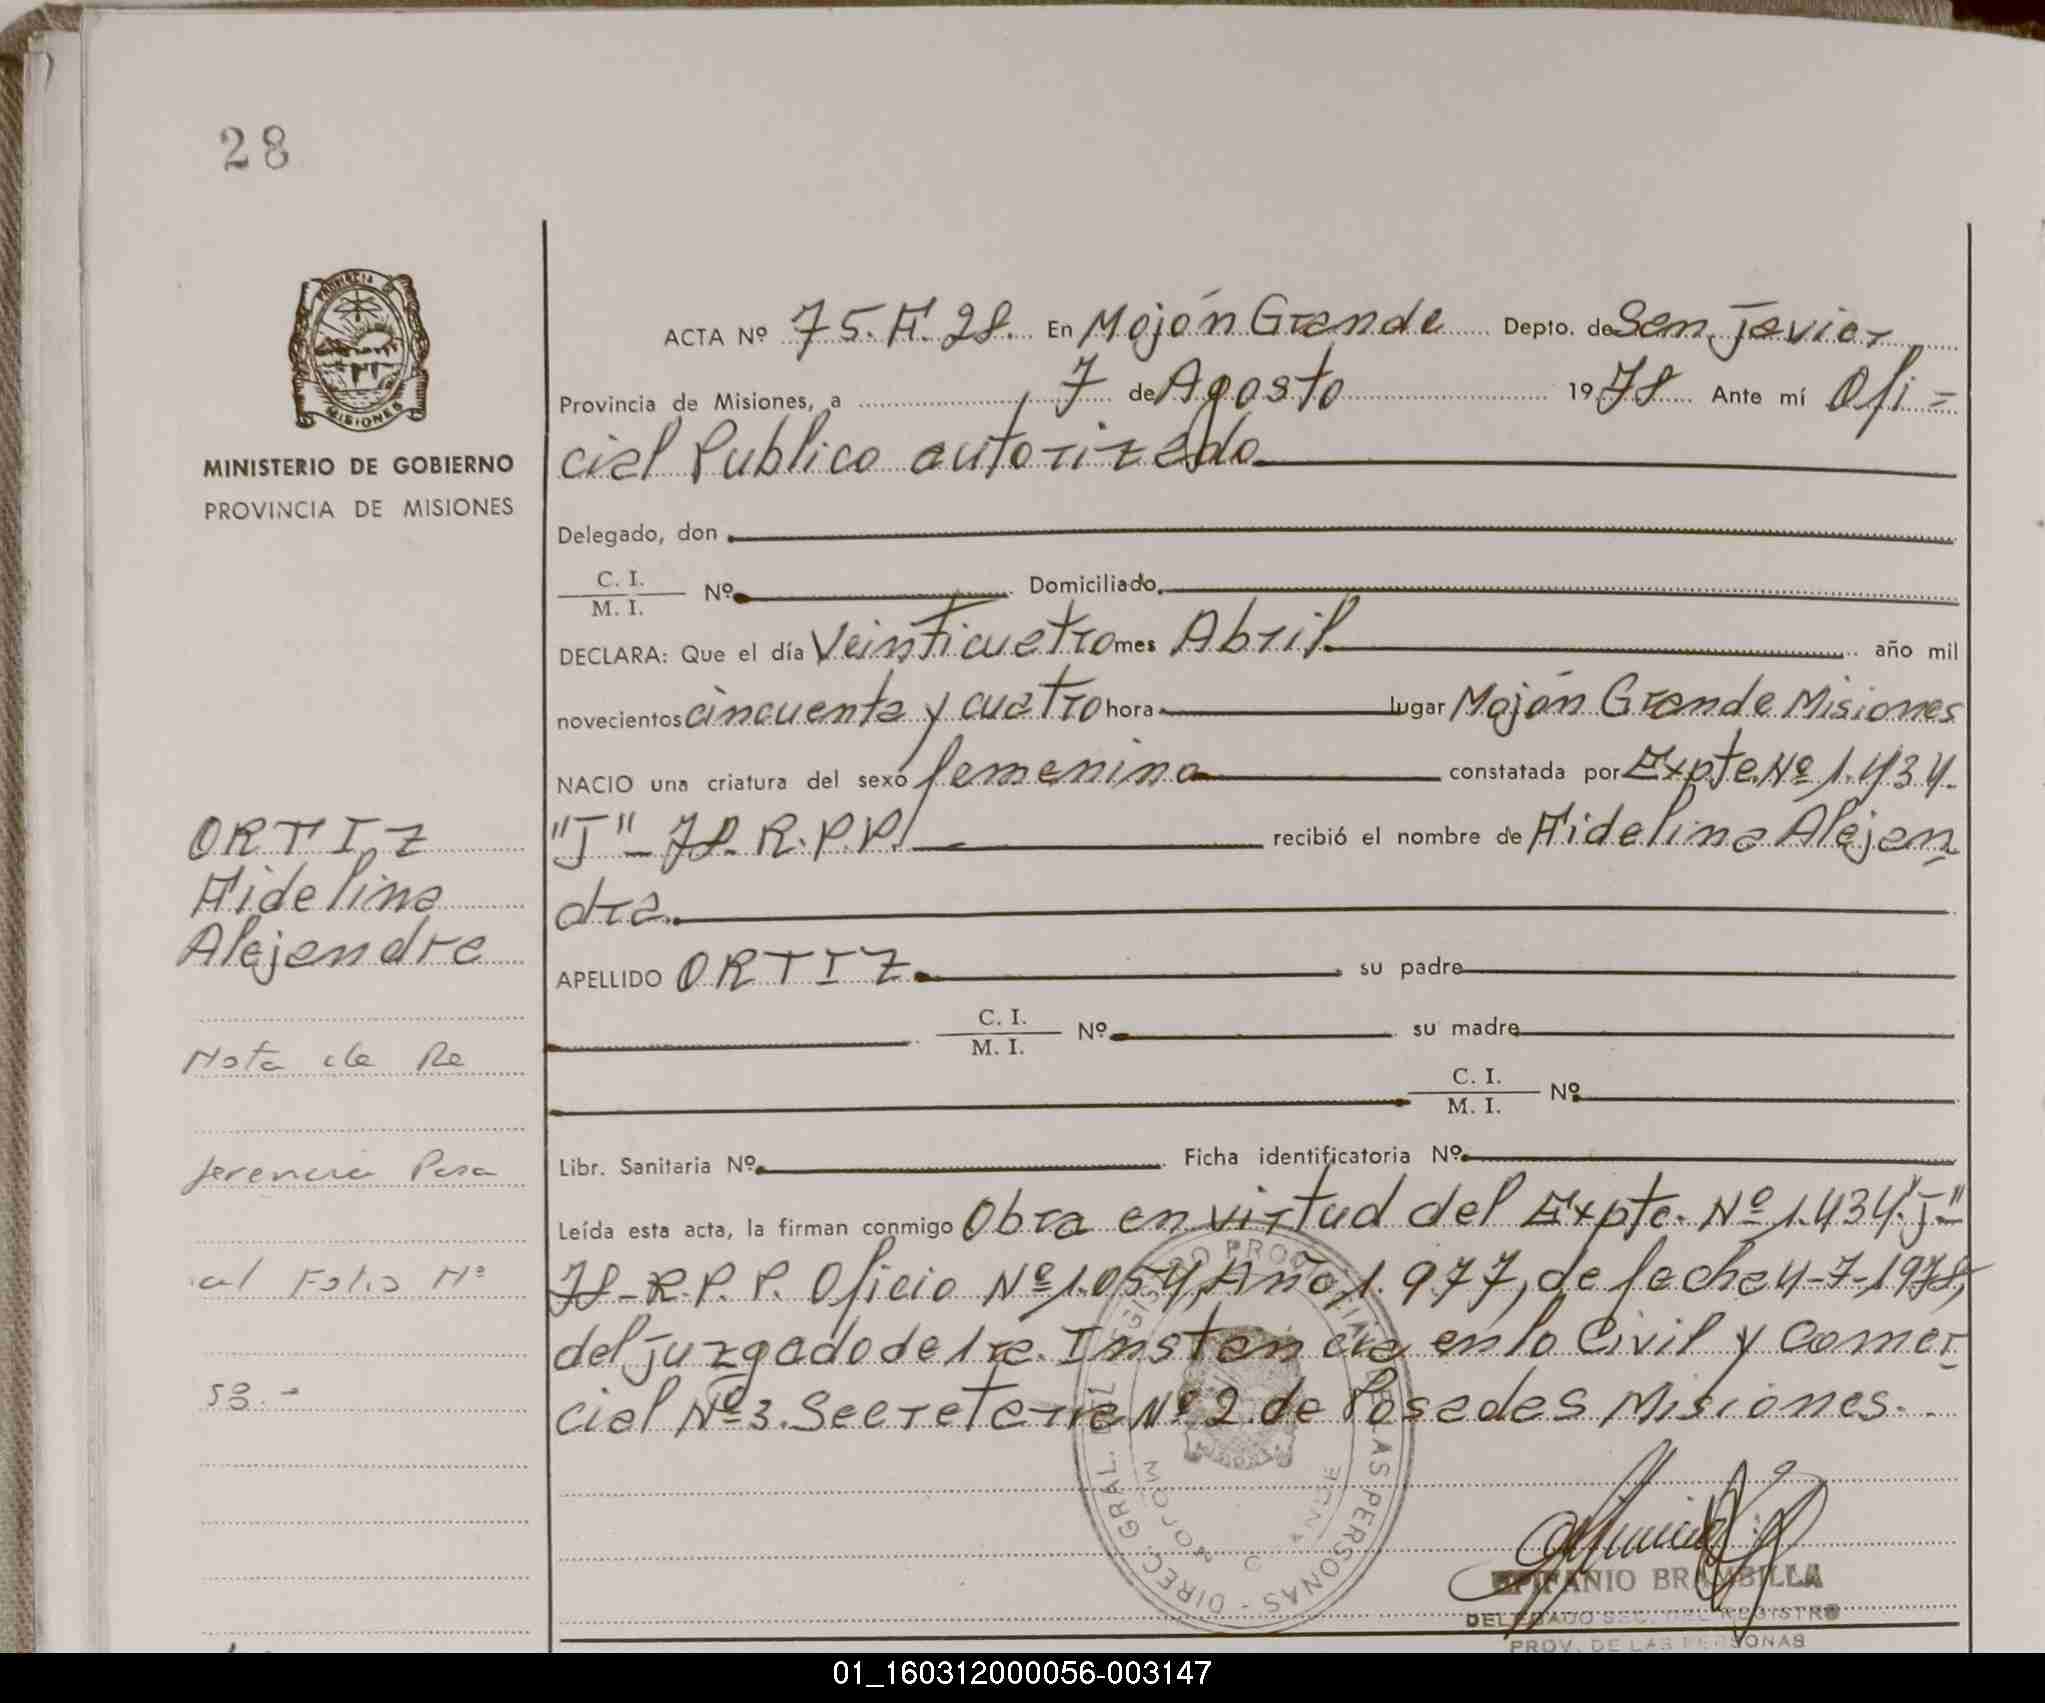 28
PROVINCIA DE
MISIONES
MINISTERIO DE GOBIERNO
PROVINCIA DE MISIONES
ORTIZ
Fidelina
Alejandra
Nota de Re
ferencia Pasa
al Folio Nº
53.-
ACTA Nº 75. F. 28. En Mojón Grande Depto. de San Javier
Provincia de Misiones, a 7 de Agosto 1978 Ante mí Ofi=
cial Publico autorizado
Delegado, don
C. I.
M. I. Nº Domiciliado
DECLARA: Que el día Veinticuatro mes Abril año mil
novecientos cincuenta y cuatro hora lugar Mojón Grande Misiones
NACIO una criatura del sexo femenino constatada por Expte. Nº 1.434.
"J"-78-R.P.P. recibió el nombre de Fidelina Alejan
dra.
APELLIDO ORTIZ su padre
C. I.
M. I. Nº su madre
C. I.
M. I. Nº
Libr. Sanitaria Nº Ficha identificatoria Nº
Leída esta acta, la firman conmigo Obra en virtud del Expte. Nº 1.434."J"-
78-R.P.P. Oficio Nº 1.054, Año 1.977, de fecha 4-7-1978,
del juzgado de 1ra. Instancia en lo Civil y Comer
cial Nº 3. Secretaria Nº 2 de Posadas Misiones.
DIREC. GRAL. DEL REGISTRO PROVINCIAL DE LAS PERSONAS -
MOJON GRANDE
EPIFANIO BRAMBILLA
DELEGADO SEC. DEL REGISTRO
PROV. DE LAS PERSONAS
01_160312000056-003147